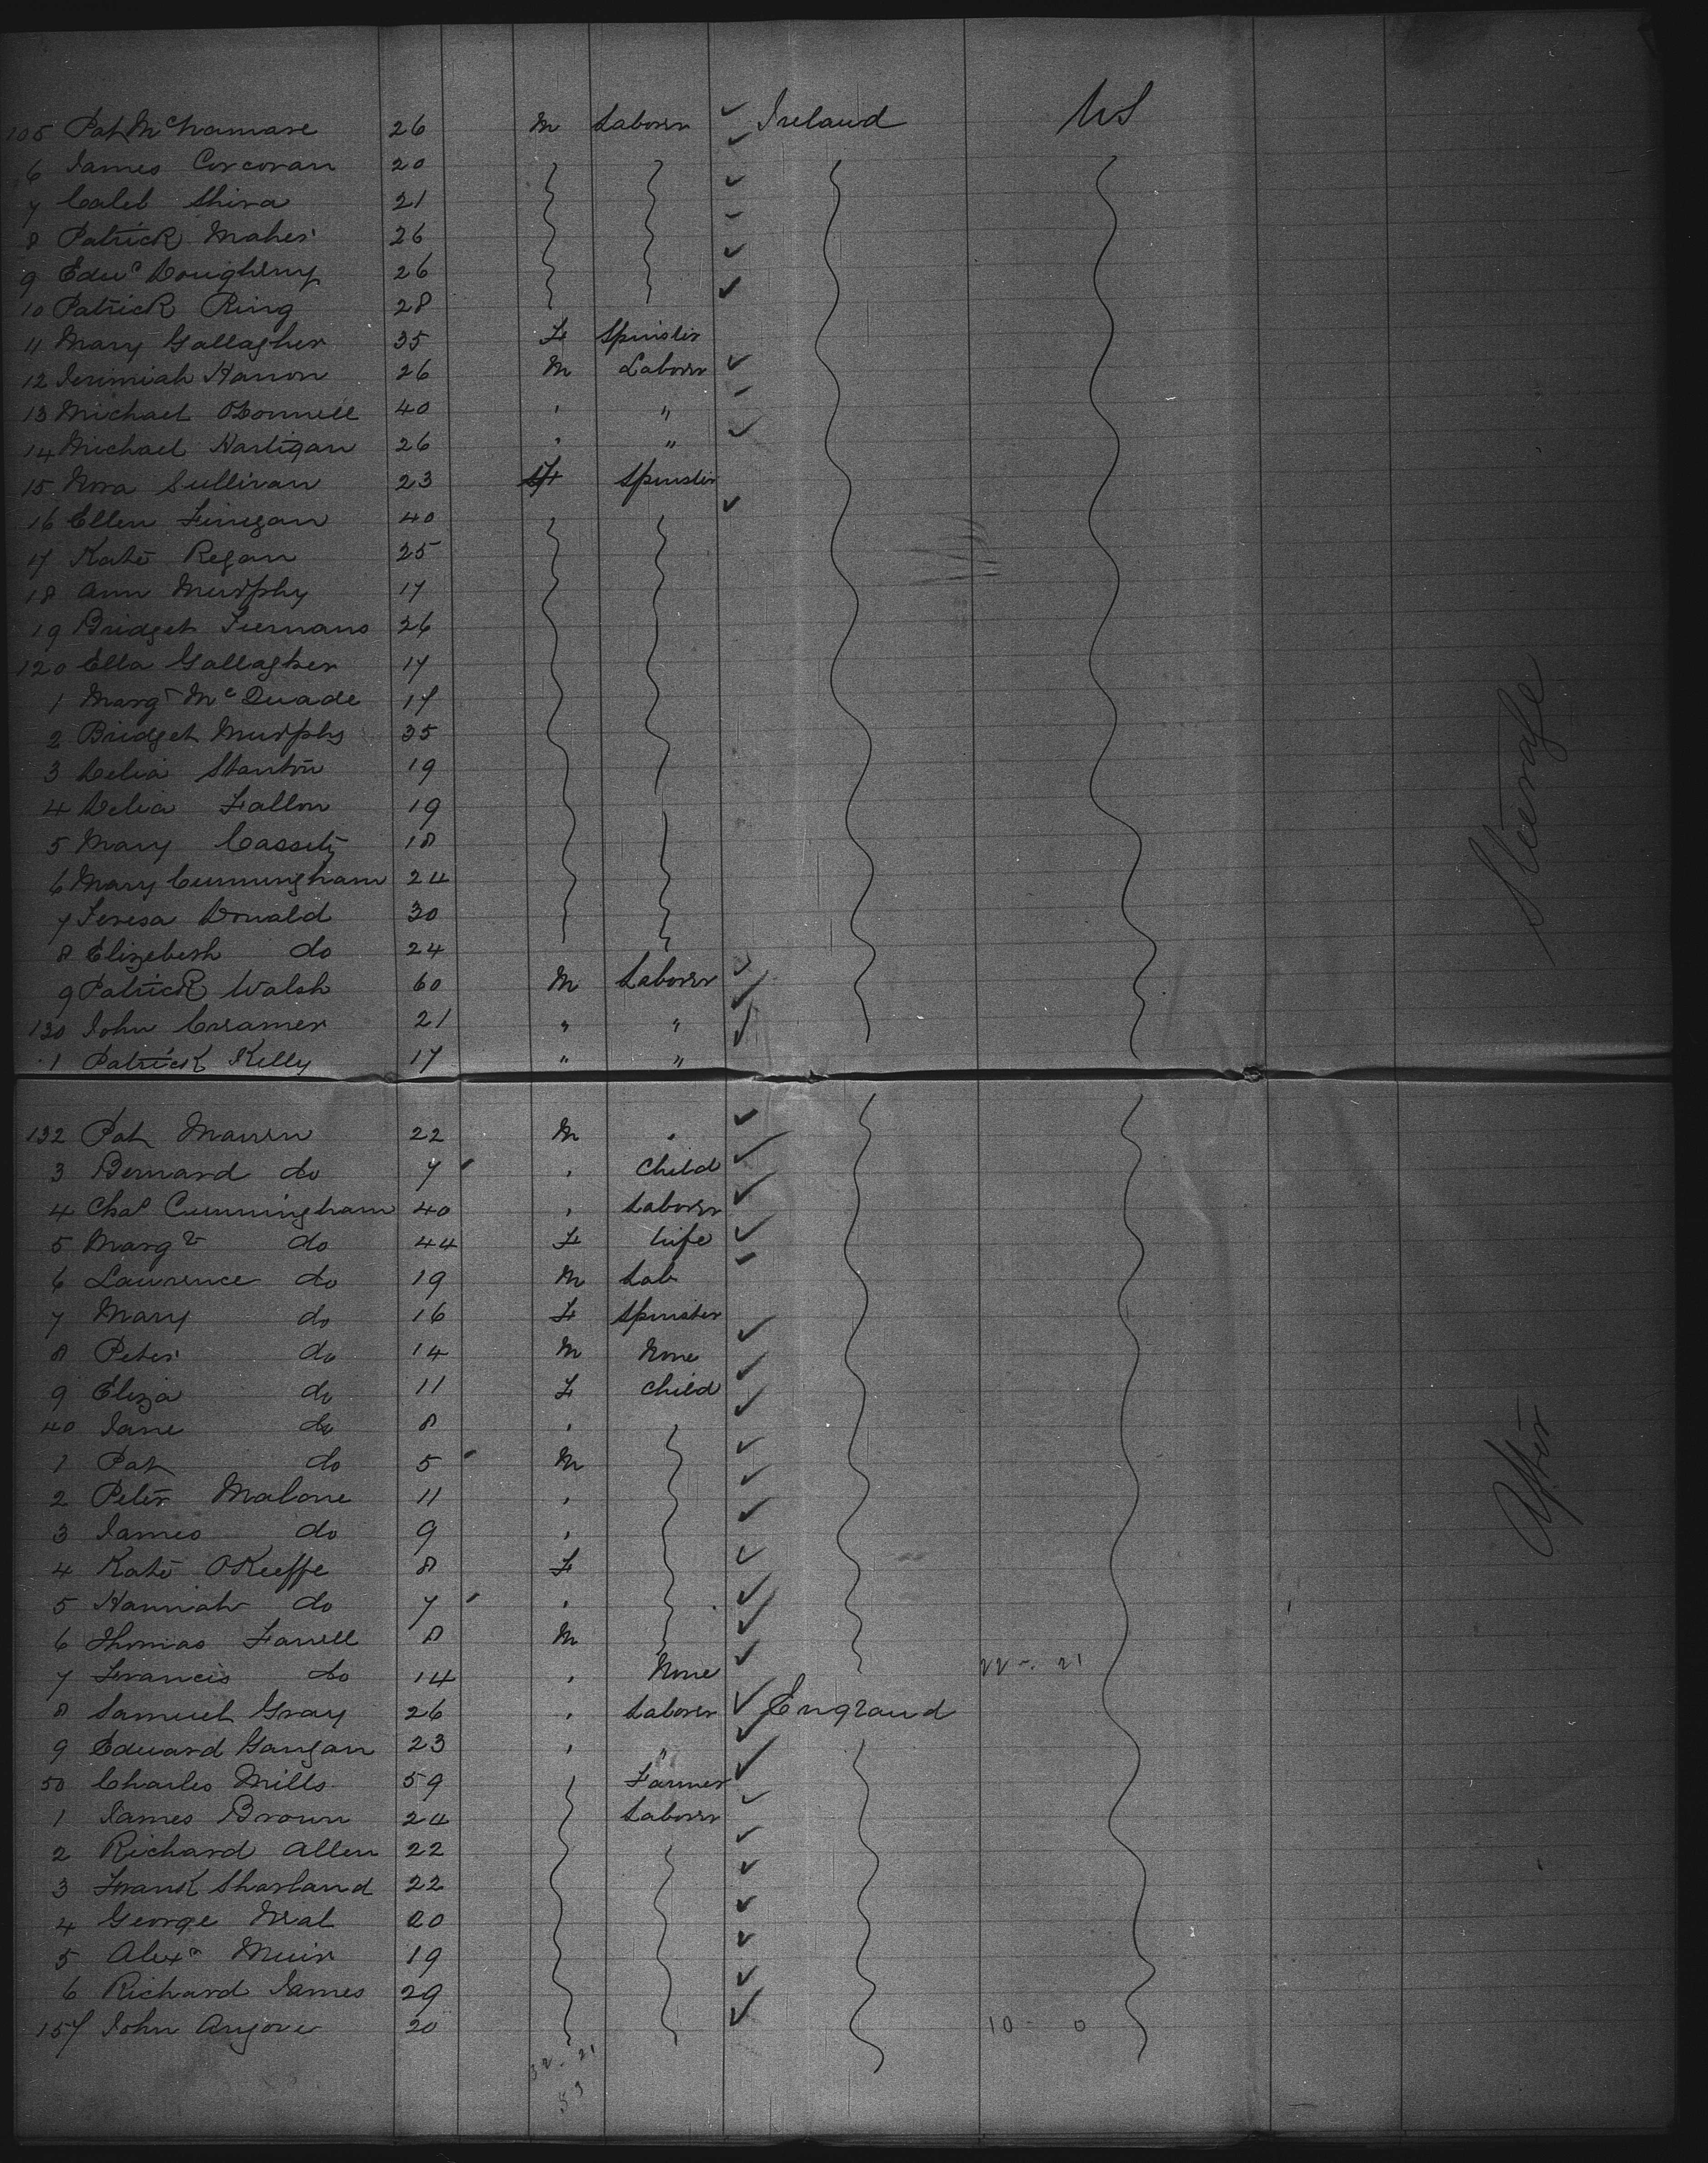 105 Pat McNamare 26 M Laborer Ireland US
6 James Corcoran 20
7 Caleb Shira 21
8 Patrick Maher 26
9 Edwd Dougherty 26
10 Patrick Ring 28
11 Mary Gallagher 35 F Spinster
12 Jerimiah Hanon 26 M Laborer
13 Michael OConnell 40 " "
14 Michael Hartigan 26 " "
15 Nora Sullivan 23 F Spinster
16 Ellen Finegan 40
17 Kate Regan 25
18 Ann Murphy 17
19 Bridget Tiernans 26
120 Ella Gallagher 17
1 Margt McQuade 17
2 Bridget Murphy 35
3 Delia Stanton 19
4 Delia Fallon 19
5 Mary Cassity 18
6 Mary Cunningham 24
7 Teresa Donald 30
8 Elizebeth do 24
9 Patrick Walsh 60 M Laborer
130 John Creamer 21 " "
1 Patrick Kelly 17 " "
Steerage
132 Pat 22 M "
3 Bernard do 7 " Child
4 Chas Cunningham 40 " Laborer
5 Margt do 44 F Wife
6 Lawrence do 19 M Lab
7 Mary do 16 F Spinster
8 Peter do 14 M None
9 Eliza do 11 F Child
40 Jane do 8 "
1 Pat do 5 M
2 Peter Malone 11 "
3 James do 9 "
4 Kate OKeeffe 8 F
5 Hannah do 7 "
6 Thomas Farrell 8 M
7 Francis do 14 " None 22 - 21
8 Samuel Gray 26 " Laborer England
9 Edward Gaugan 23 " "
50 Charles Mills 59 Farmer
1 James Brown 24 Laborer
2 Richard Allen 22
3 Frank Sharland 22
4 George Neal 20
5 Alexr Muir 19
6 Richard James 29
157 John Angove 20 10 - 0
After
32 - 21
53